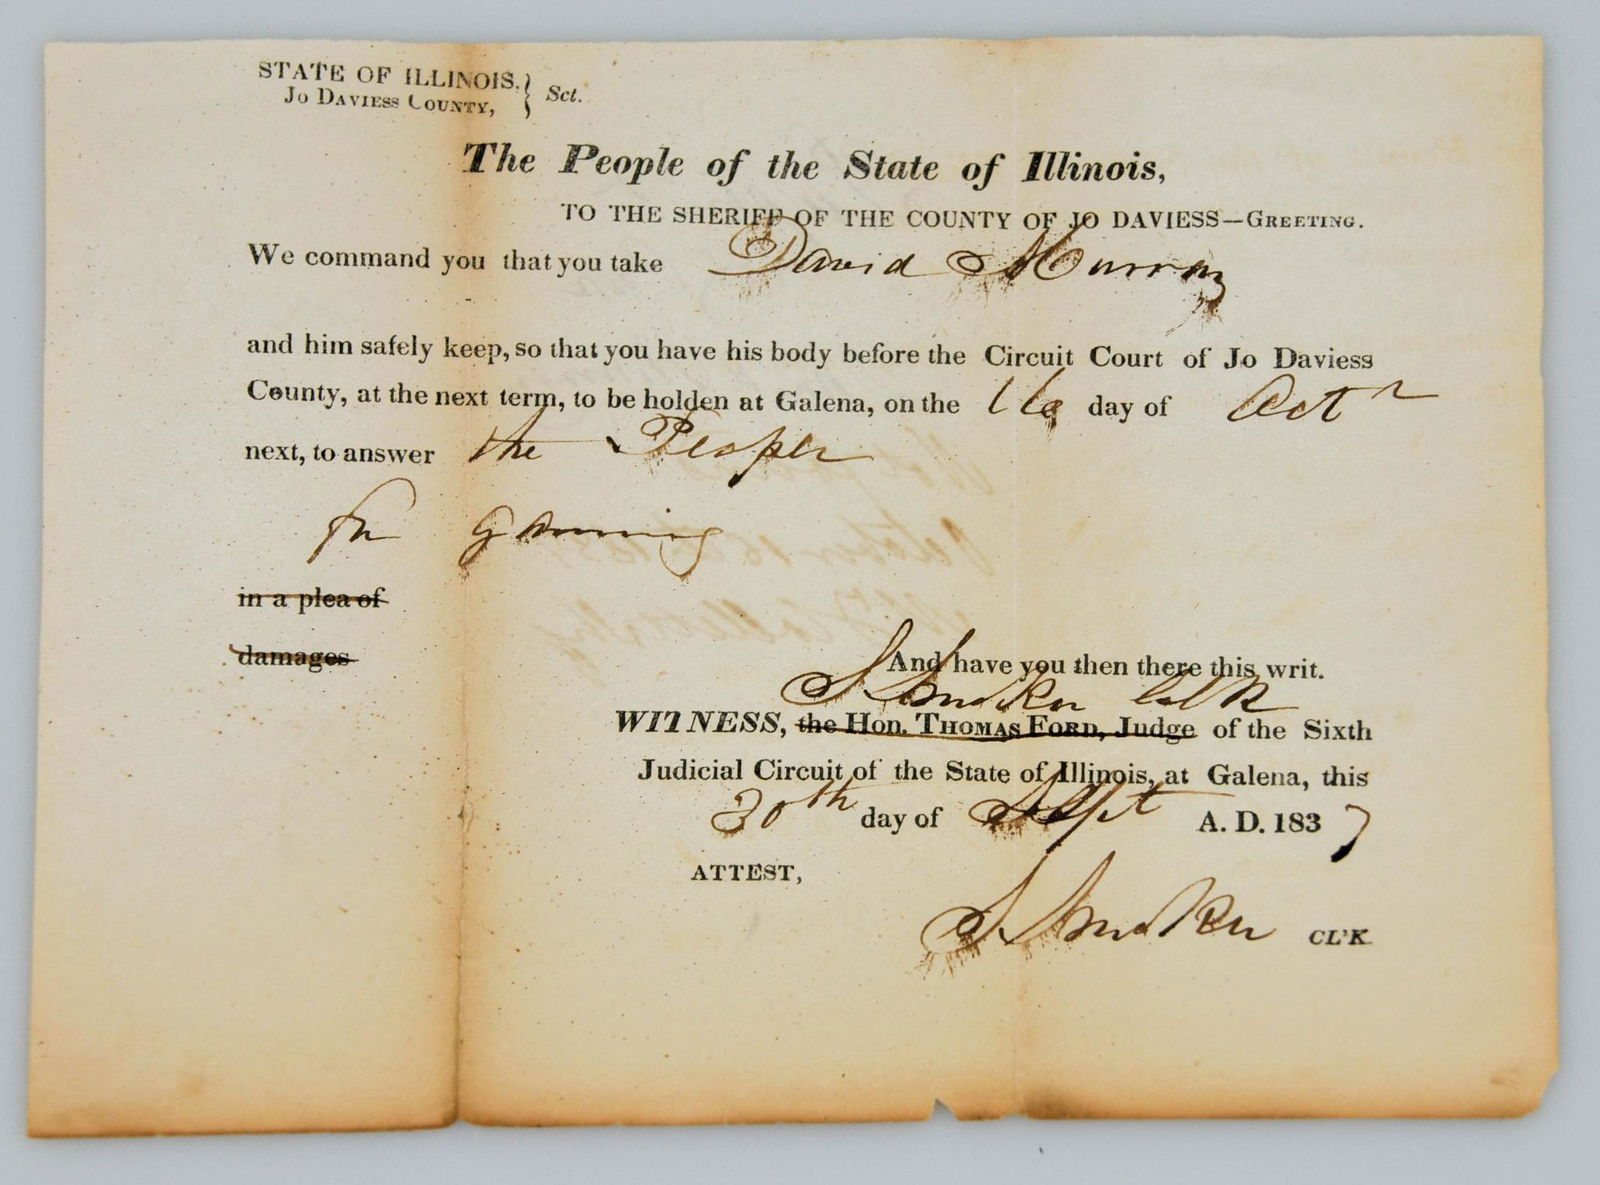 STATE OF ILLINOIS.
Jo Daviess County,
} Sct.
The People of the State of Illinois,
TO THE SHERIFF OF THE COUNTY OF JO DAVIESS—Greeting.
We command you that you take David Murray
and him safely keep, so that you have his body before the Circuit Court of Jo Daviess
County, at the next term, to be holden at Galena, on the 16 day of Octr
next, to answer the People
for gaming
in a plea of
damages
And have you then there this writ.
S Smoker Clk
WITNESS, the Hon. Thomas Ford, Judge of the Sixth
Judicial Circuit of the State of Illinois, at Galena, this
30th day of Sept A. D. 1837
ATTEST,
S Smoker CL'K.